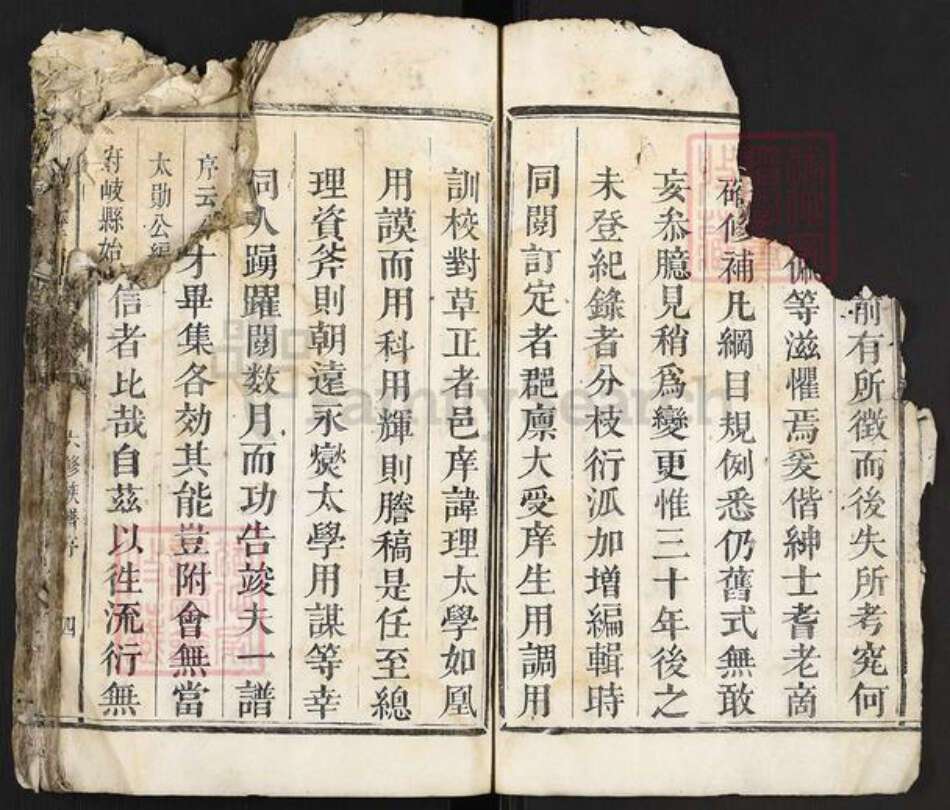 前有所徵而後失所考究何
佩等滋懼焉爰偕紳士耆老啇
修補凡綱目規例悉仍舊式無敢
妄叅臆見稍爲變更惟三十年後之
未登紀錄者分枝衍派加增編輯時
同閱訂定者郡廪大受庠生用調用
訓校對草正者邑庠諱理太學如凰
用謨而用科用輝則謄稿是任至總
理資斧則朝遠永爕太學用謀等幸
同人踴躍閱数月而功告竣夫一譜
才畢集各効其能豈附會無當
信者比哉自茲以徃流衍無
序云
太勛公編
府岐縣始
六修族譜序
四
familysearch